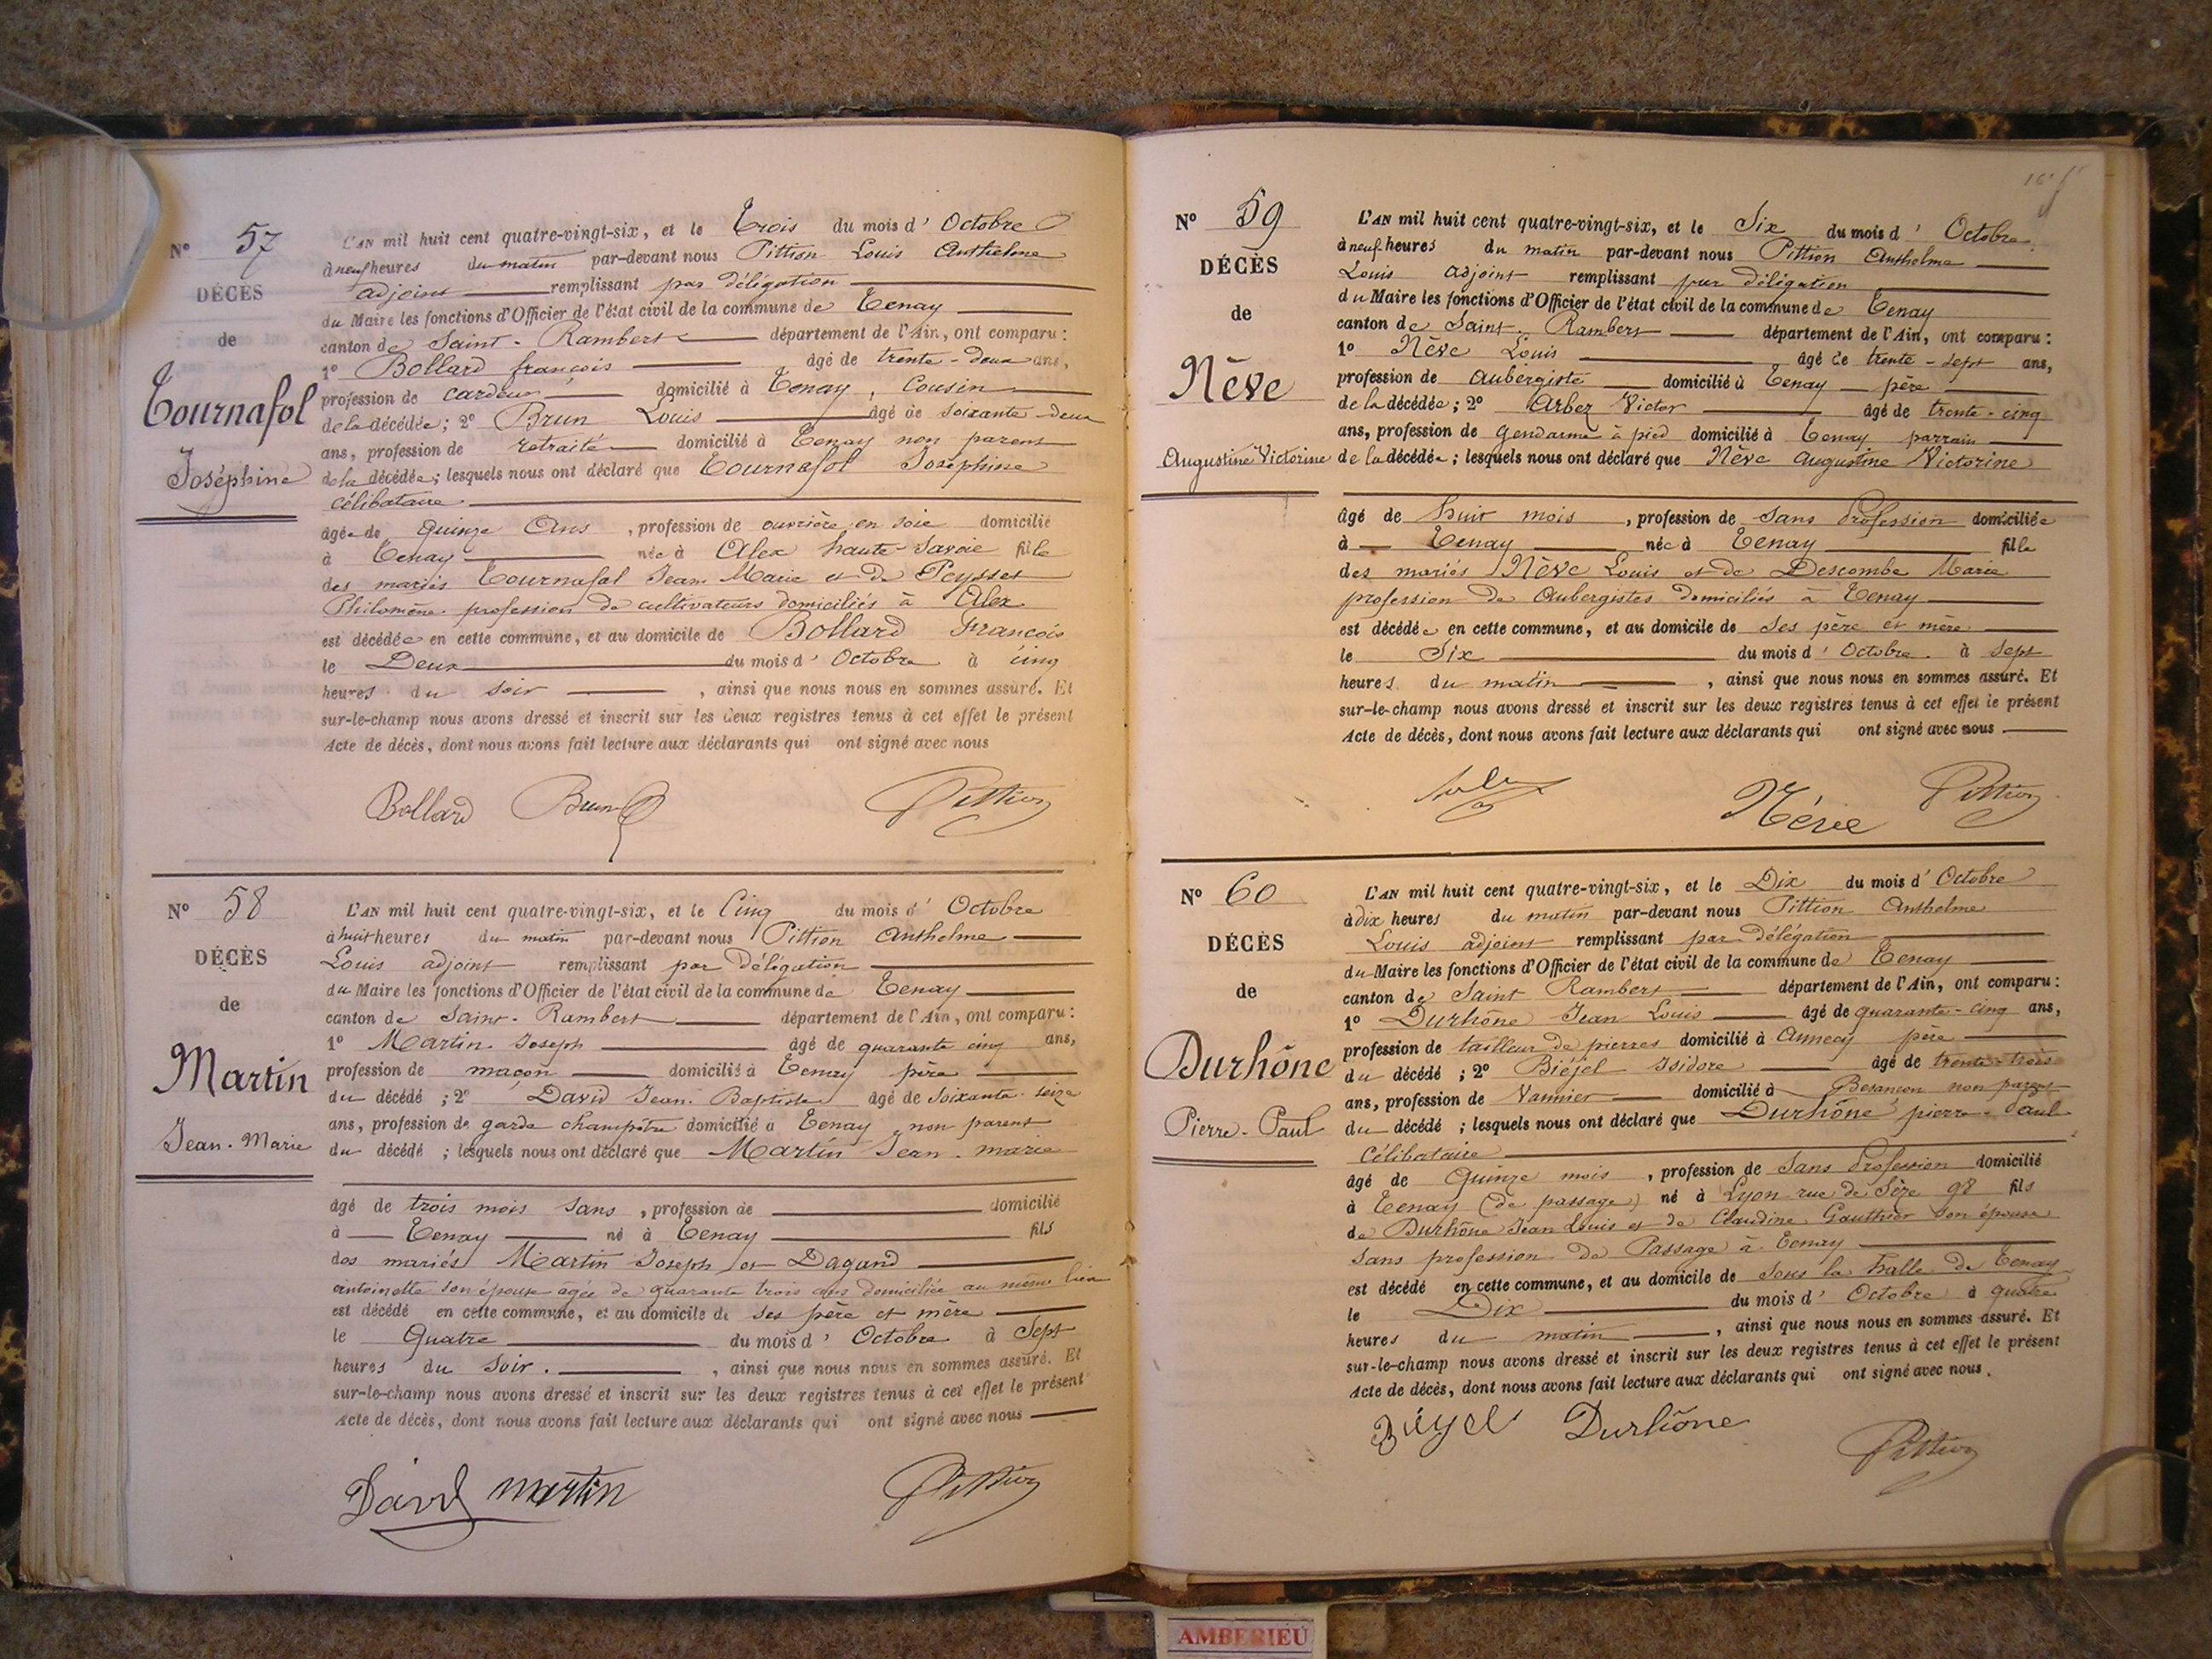 Nº 57
DÉCÈS
de
Tournafol
Joséphine
L'AN mil huit cent quatre-vingt-six, et le Trois du mois d' Octobre
à neuf heures du matin par-devant nous Pittion Louis Anthelme
adjoint remplissant par délégation
du Maire les fonctions d'Officier de l'état civil de la commune de Tenay
canton de Saint-Rambert département de l'Ain, ont comparu :
1º Bollard françois âgé de trente-deux ans,
profession de cardeur domicilié à Tenay, Cousin
de la décédée ; 2º Brun Louis âgé de soixante-deux
ans, profession de retraité domicilié à Tenay non parent
de la décédée ; lesquels nous ont déclaré que Tournafol Joséphine
célibataire.
âgée de quinze Ans, profession de ouvrière en soie domicilié
à Tenay née à Alex haute-Savoie fille
des mariés Tournafol Jean Marie et de Peysset
Philomène profession de cultivateurs domiciliés à Alex
est décédée en cette commune, et au domicile de Bollard François
le Deux du mois d' Octobre à cinq
heures du soir, ainsi que nous nous en sommes assuré. Et
sur-le-champ nous avons dressé et inscrit sur les deux registres tenus à cet effet le présent
Acte de décès, dont nous avons fait lecture aux déclarants qui ont signé avec nous
Bollard Brun Pittion
Nº 58
DÉCÈS
de
Martin
Jean-Marie
L'AN mil huit cent quatre-vingt-six, et le Cinq du mois d' Octobre
à huit heures du matin par-devant nous Pittion Anthelme
Louis adjoint remplissant par délégation
du Maire les fonctions d'Officier de l'état civil de la commune de Tenay
canton de Saint-Rambert département de l'Ain, ont comparu :
1º Martin Joseph âgé de quarante cinq ans,
profession de maçon domicilié à Tenay père
du décédé ; 2º David Jean-Baptiste âgé de soixante-seize
ans, profession de garde champêtre domicilié à Tenay non parent
du décédé ; lesquels nous ont déclaré que Martin Jean-marie
âgé de trois mois sans, profession de domicilié
à Tenay né à Tenay fils
des mariés Martin Joseph et Dagand
antoinette son épouse âgée de quarante trois ans domiciliée au même lieu
est décédé en cette commune, et au domicile de ses père et mère
le Quatre du mois d' Octobre à Sept
heures du soir., ainsi que nous nous en sommes assuré. Et
sur-le-champ nous avons dressé et inscrit sur les deux registres tenus à cet effet le présent
Acte de décès, dont nous avons fait lecture aux déclarants qui ont signé avec nous
David martin Pittion
Nº 59
DÉCÈS
de
Nève
Augustine Victorine
L'AN mil huit cent quatre-vingt-six, et le Six du mois d' Octobre
à neuf heures du matin par-devant nous Pittion Anthelme
Louis adjoint remplissant par délégation
du Maire les fonctions d'Officier de l'état civil de la commune de Tenay
canton de Saint-Rambert département de l'Ain, ont comparu :
1º Nève Louis âgé de trente-sept ans,
profession de Aubergiste domicilié à Tenay père
de la décédée ; 2º Arbez Victor âgé de trente-cinq
ans, profession de gendarme à pied domicilié à Tenay parrain
de la décédée ; lesquels nous ont déclaré que Nève Augustine Victorine
âgé de huit mois, profession de sans profession domiciliée
à Tenay née à Tenay fille
des mariés Nève Louis et de Descombe Marie
profession de Aubergistes domiciliés à Tenay
est décédée en cette commune, et au domicile de ses père et mère
le Six du mois d' Octobre à sept
heures du matin, ainsi que nous nous en sommes assuré. Et
sur-le-champ nous avons dressé et inscrit sur les deux registres tenus à cet effet le présent
Acte de décès, dont nous avons fait lecture aux déclarants qui ont signé avec nous
Nève Pittion
Nº 60
DÉCÈS
de
Durhône
Pierre-Paul
L'AN mil huit cent quatre-vingt-six, et le Dix du mois d' Octobre
à dix heures du matin par-devant nous Pittion Anthelme
Louis adjoint remplissant par délégation
du Maire les fonctions d'Officier de l'état civil de la commune de Tenay
canton de Saint Rambert département de l'Ain, ont comparu :
1º Durhône Jean Louis âgé de quarante-cinq ans,
profession de tailleur de pierres domicilié à Annecy père
du décédé ; 2º Biéjel Isidore âgé de trente-trois
ans, profession de Vannier domicilié à Besançon non parent
du décédé ; lesquels nous ont déclaré que Durhône pierre-Paul
Célibataire
âgé de Quinze mois, profession de Sans Profession domicilié
à Tenay (de passage) né à Lyon rue de Sèze 98 fils
de Durhône Jean Louis et de Claudine Gauthier son épouse
sans profession de Passage à Tenay
est décédé en cette commune, et au domicile de sous la halle de Tenay
le Dix du mois d' Octobre à quatre
heures du matin, ainsi que nous nous en sommes assuré. Et
sur-le-champ nous avons dressé et inscrit sur les deux registres tenus à cet effet le présent
Acte de décès, dont nous avons fait lecture aux déclarants qui ont signé avec nous.
Durhône Pittion
AMBERIEU